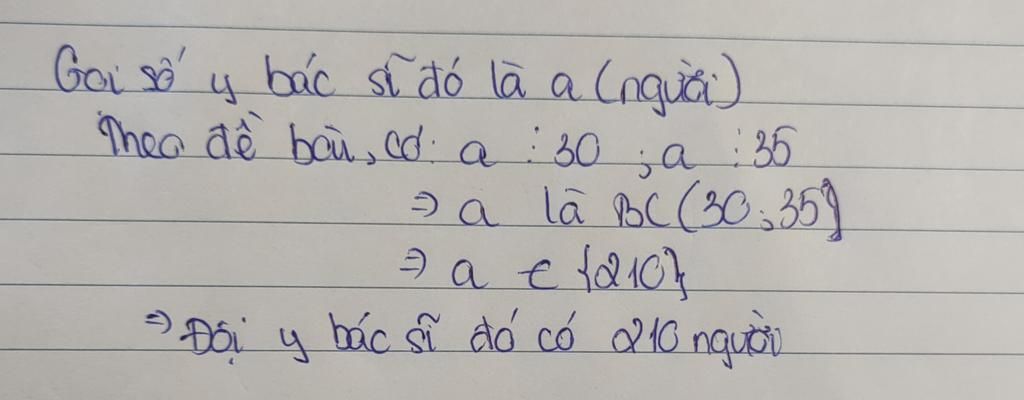 Gọi số y bác sĩ đó là a (người)
Theo đề bài, có: a ⋮ 30 ; a ⋮ 35
⇒ a là BC(30;35)
⇒ a ∈ {210}
⇒ Đội y bác sĩ đó có 210 người